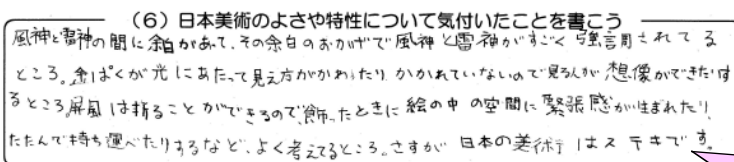 （６）日本美術のよさや特性について気付いたことを書こう
風神と雷神の間に余白があって、その余白のおかげで風神と雷神がすごく強調されてる
ところ。金ぱくが光にあたって見え方がかわったり、かかれていないので見る人が想像ができたりす
るところ屏風は折ることができるので飾ったときに絵の中の空間に緊張感が生まれたり、
たたんで持ち運べたりするなど、よく考えてるところ。さすが日本の美術はステキです。